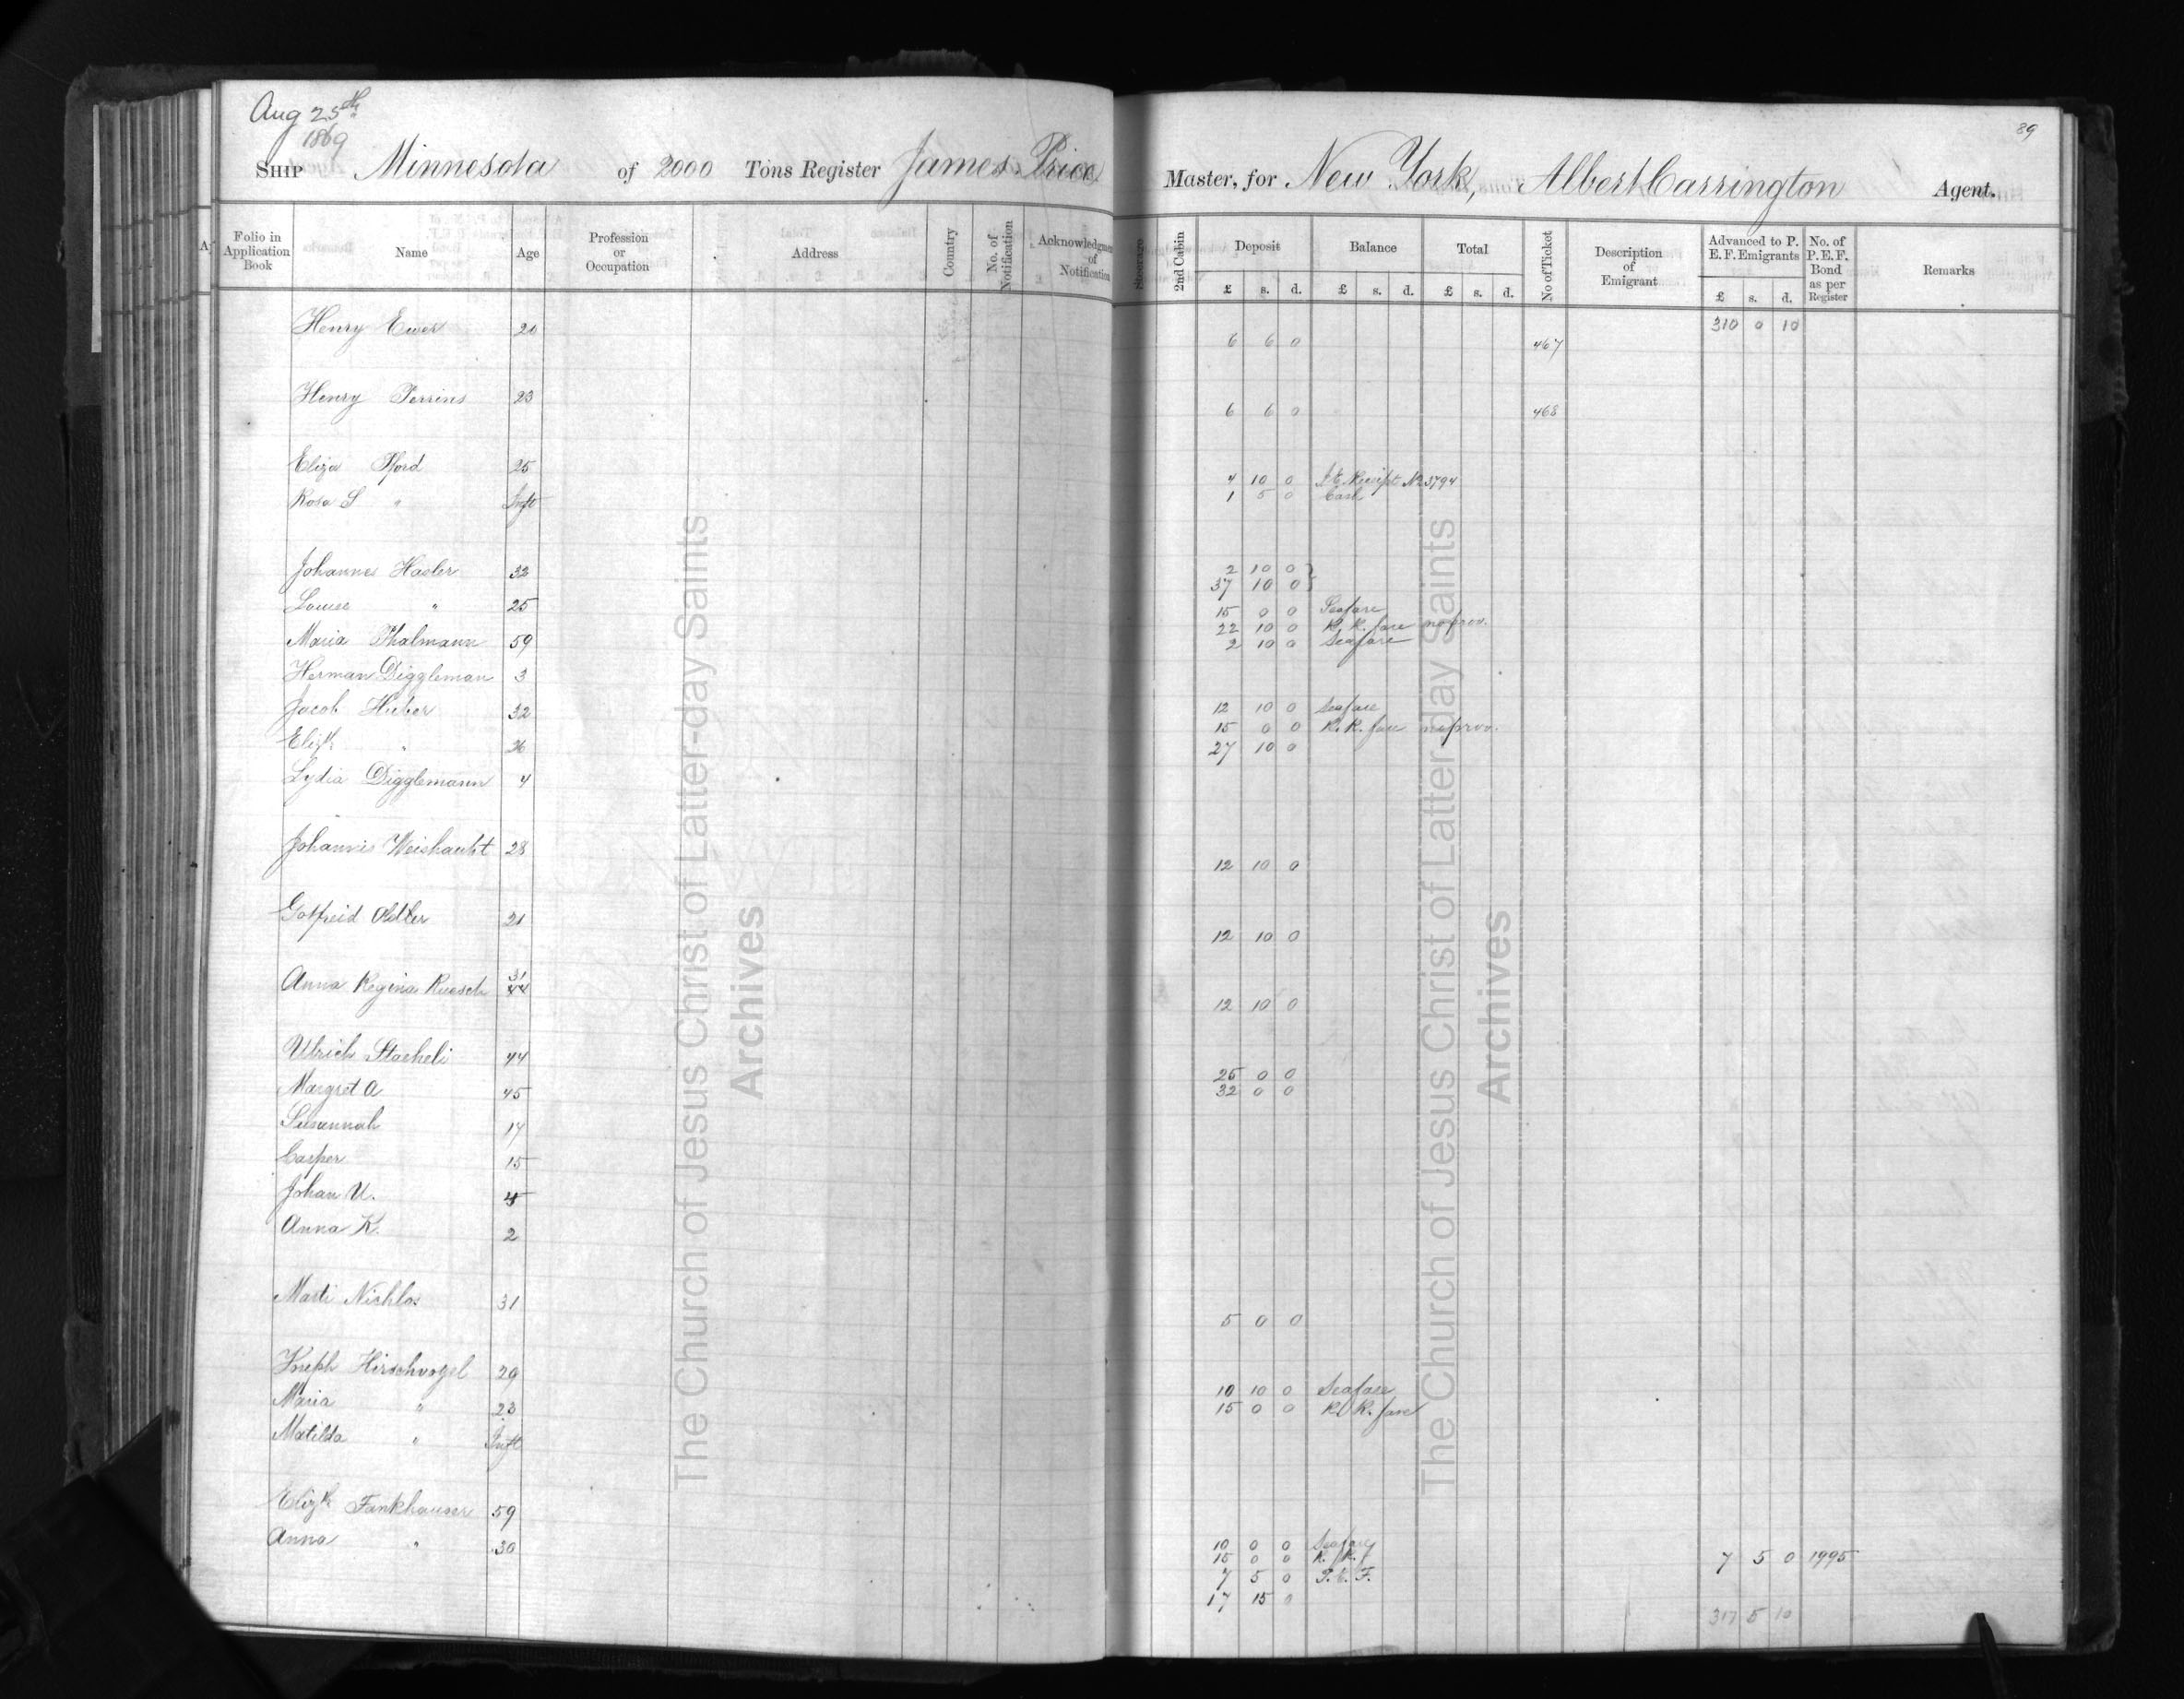 Aug 25th
1869
89
SHIP Minnesota of 2000 Tons Register James Price Master, for New York, Albert Carrington Agent.
Folio in Application Book Name Age Profession or Occupation Address Country No. of Notification Acknowledgment of Notification Steerage 2nd Cabin Deposit Balance Total No of Ticket Description of Emigrant Advanced to P. E. F. Emigrants No. of P. E. F. Bond as per Register Remarks
£ s. d. £ s. d. £ s. d. £ s. d.
310 0 10
Henry Ewer 20
6 6 0 467
Henry Perrins 23
6 6 0 468
Eliza Pford 25
4 10 0 Receipt No 3794
Rosa S " Inft
1 5 0 Cash
Johannes Hasler 32
2 10 0
37 10 0
Louise " 25
15 0 0 Seafare
22 10 0 R. R. fare no prov.
Maria Thalmann 59
2 10 0 Seafare
Herman Diggleman 3
Jacob Huber 32
12 10 0 Seafare
15 0 0 R. R. fare no prov.
Elizh " 26
27 10 0
Lydia Digglemann 4
Johannis Weishaubt 28
12 10 0
Gotfreid Adler 21
12 10 0
Anna Regina Ruesch 31 44
12 10 0
Ulrich Staeheli 44
25 0 0
Margret A 45
32 0 0
Susannah 17
Casper 15
Johan U.
Anna K. 2
Marti Nichlos 31
5 0 0
Joseph Hirschvogel 29
10 10 0 Seafare
Maria " 23
15 0 0 R. R. fare
Matilda " Inft
Elizh Fankhauser 59
Anna " 30
10 0 0 Seafare
15 0 0 R. R. f
7 5 0 1995
7 5 0 P. E. F.
17 15 0
317 5 10
The Church of Jesus Christ of Latter-day Saints
Archives
The Church of Jesus Christ of Latter-day Saints
Archives